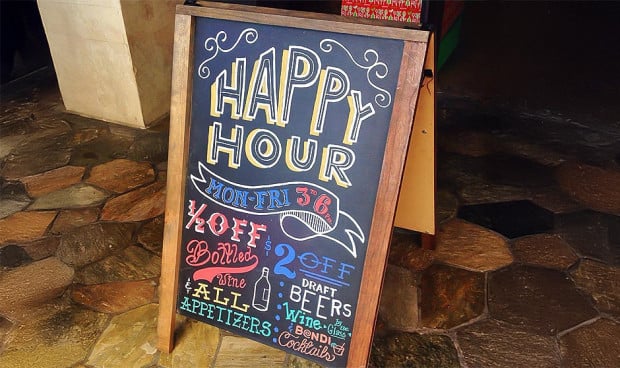 HAPPY
HOUR
MON-FRI 3 TO 6 PM
½ OFF
Bottled
Wine
& ALL
APPETIZERS
$2 OFF
DRAFT
BEERS
Wine By the Glass
& B@NDI
Cocktails